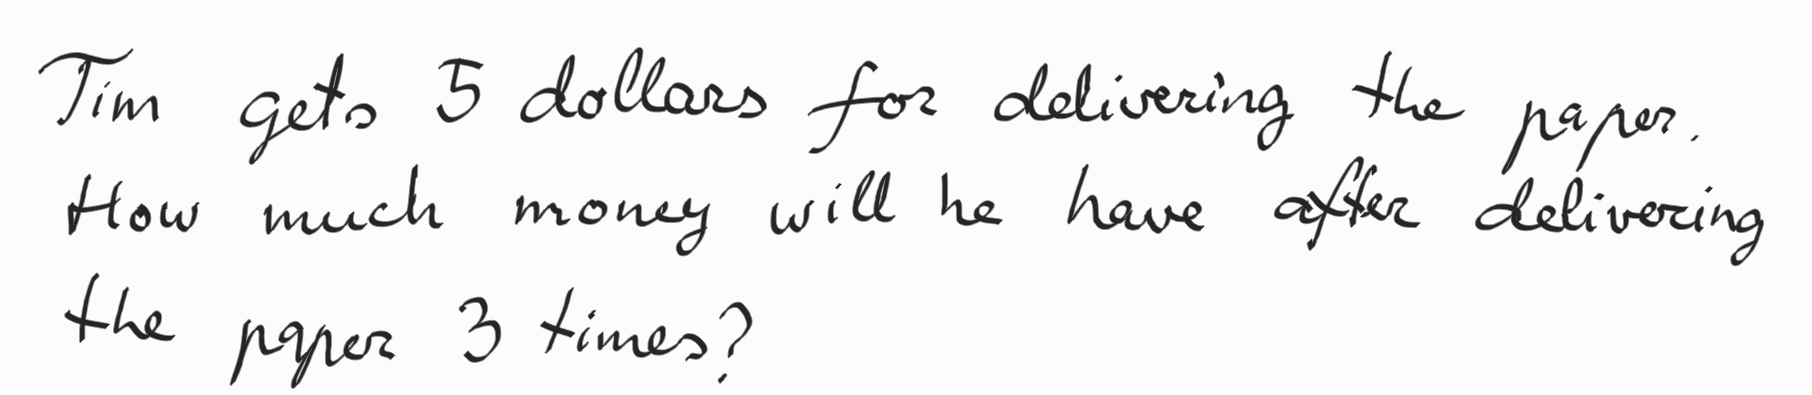 Tim gets 5 dollars for delivering the paper.
How much money will he have after delivering
the paper 3 times?